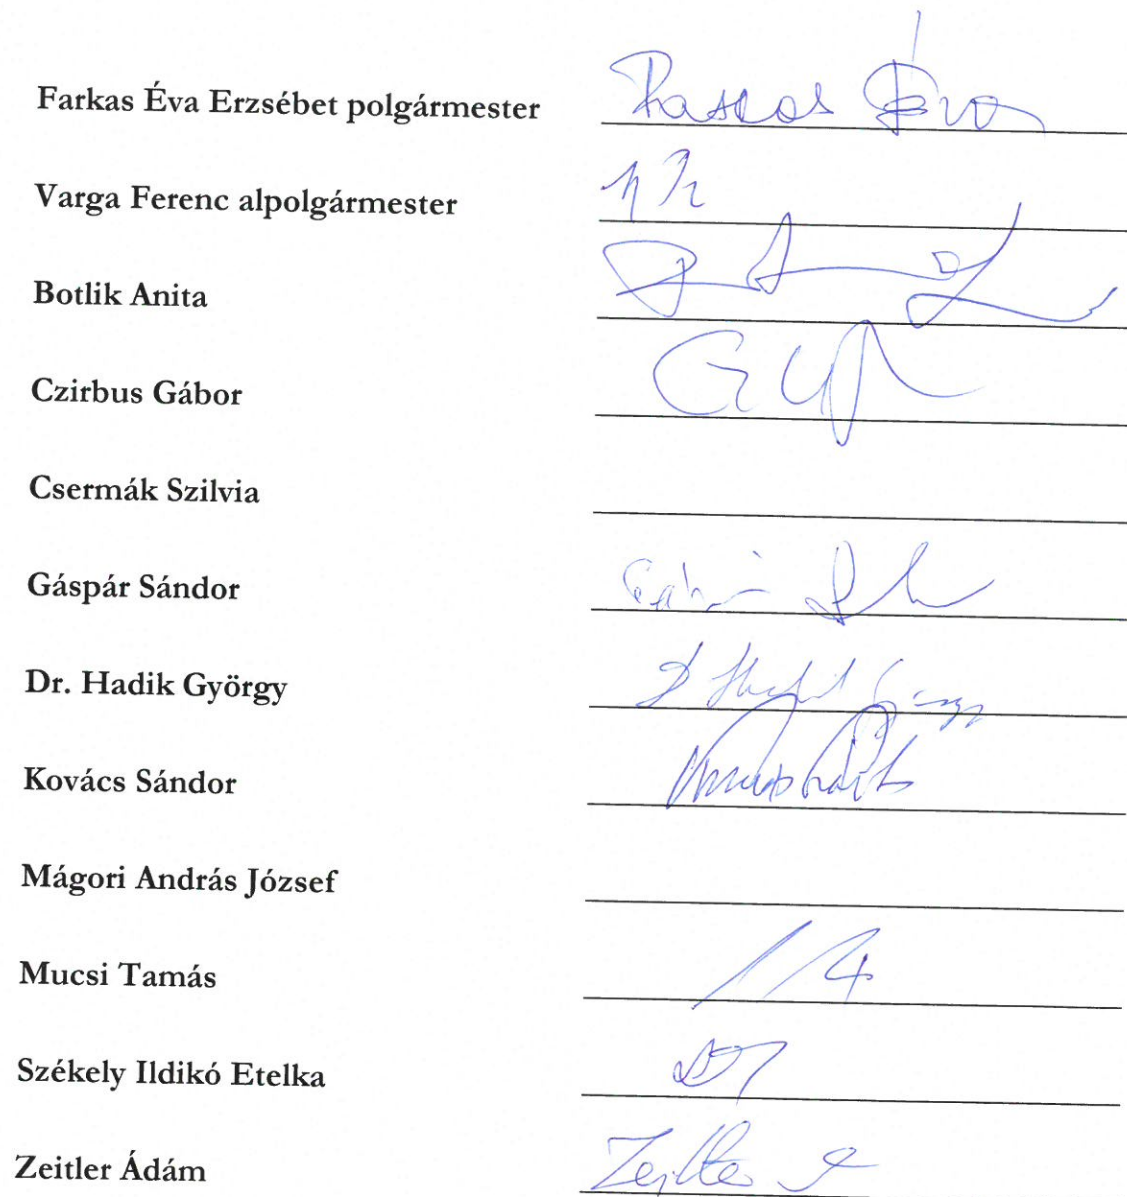 Farkas Éva Erzsébet polgármester Farkas Éva
Varga Ferenc alpolgármester
Botlik Anita
Czirbus Gábor
Csermák Szilvia
Gáspár Sándor
Dr. Hadik György Dr Hadik György
Kovács Sándor
Mágori András József
Mucsi Tamás
Székely Ildikó Etelka
Zeitler Ádám Zeitler